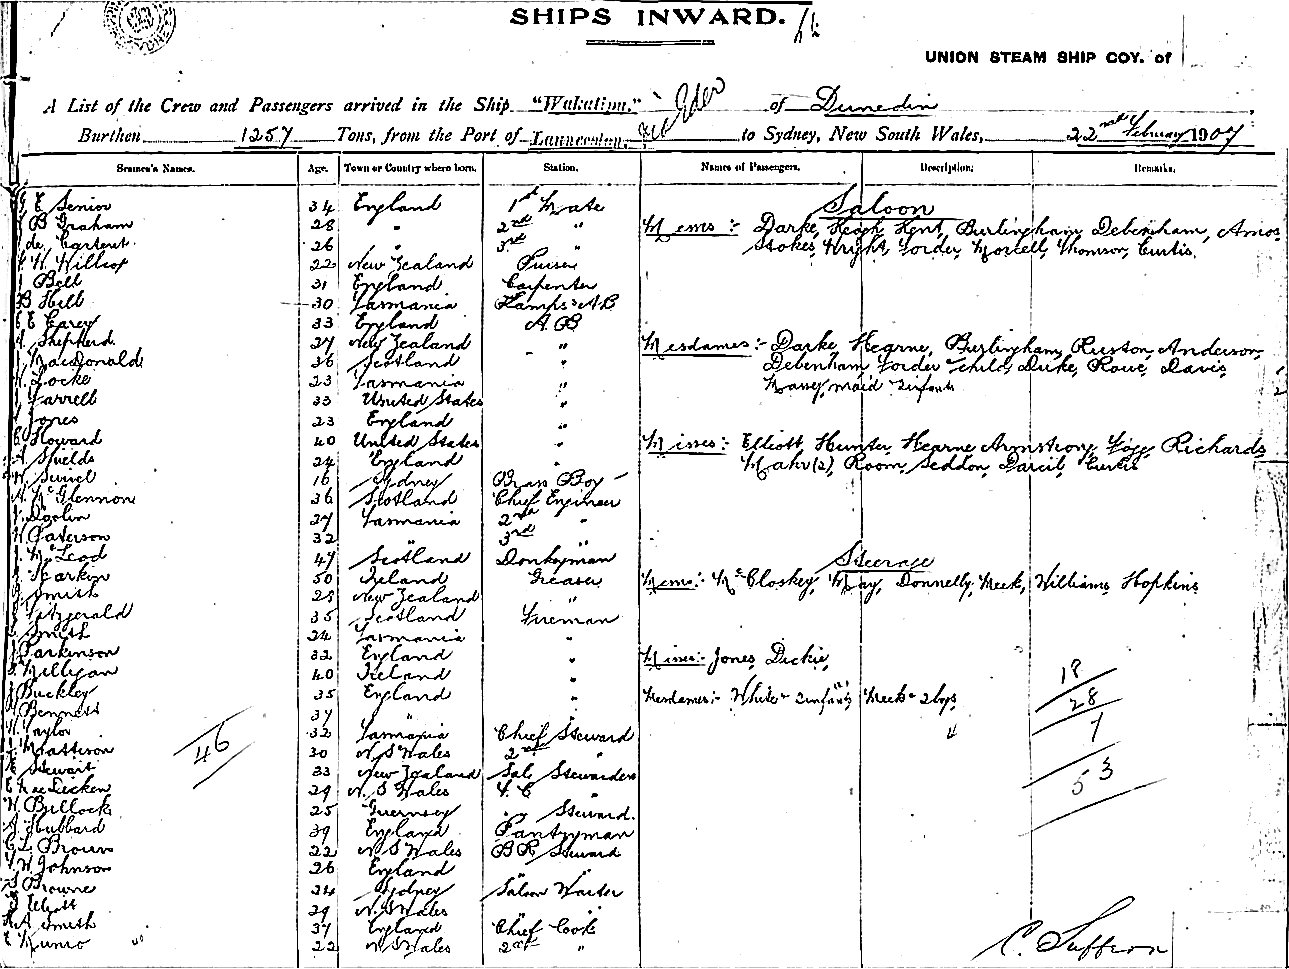 SHIPS INWARD.
UNION STEAM SHIP COY. of
A List of the Crew and Passengers arrived in the Ship "Wakatipu." of Dunedin
Burthen 1257 Tons, from the Port of Launceston, to Sydney, New South Wales, 22nd February 1907
Seamen's Names. Age. Town or Country where born. Station. Names of Passengers. Description. Remarks.
Saloon
E Senior 34 England 1st Mate
B Graham 28 " 2nd "
de Carteret 26 " 3rd "
Messrs :- Darke, Heagh, Kent, Burlingham, Debenham, Amos
Stokes, Wright, Forder, Morrell, Thomson, Curtis,
W. Willcox 22 New Zealand Purser
Bell 31 England Carpenter
B Hill 30 Tasmania Lamps & A.B
E Carey 33 England A B
Shepherd 27 New Zealand "
MacDonald 36 Scotland "
Mesdames :- Darke, Hearne, Burlingham, Ruston, Anderson,
Debenham, Forder & child, Duke, Rowe, Davis,
maid 2 infants
Locke 23 Tasmania "
Farrell 33 United States "
Jones 23 England "
Howard 40 United States "
Shields 24 England "
Misses :- Elliott, Hunter, Hearne, Armstrong, Richards
(2), Room, Seddon, Curtis
16 Sydney Brass Boy
McGlennon 36 Scotland Chief Engineer
Doolin 27 Tasmania 2nd "
Paterson 32 " 3rd "
McLeod 47 Scotland Donkeyman
Steerage
Harkin 50 Ireland Greaser
Messrs :- McCloskey, May, Donnelly, Meek, Williams, Hopkins
Smith 28 New Zealand "
Fitzgerald 35 Scotland Fireman
Smith 24 Tasmania "
Parkinson 32 England "
Milligan 40 Ireland "
Misses :- Jones, Dickie,
Buckley 35 England "
Mesdames :- White & 2 infants, Meek & 2 boys
Bennett 37 " "
Taylor 32 Tasmania Chief Steward
Mattison 30 N S Wales 2nd "
Stewart 33 New Zealand Sal. Stewardess
46
18
28
7
53
29 N. S Wales F. C "
W. Bullock 25 Guernsey " Steward.
Hubbard 39 England Pantryman
L Brown 22 N S Wales B R Steward
W Johnson 26 England "
Browne 24 Sydney Saloon Waiter
Elliott 29 N. S Wales "
A Smith 37 England Chief Cook
E Munro 22 N S Wales 2nd "
C. Saffron